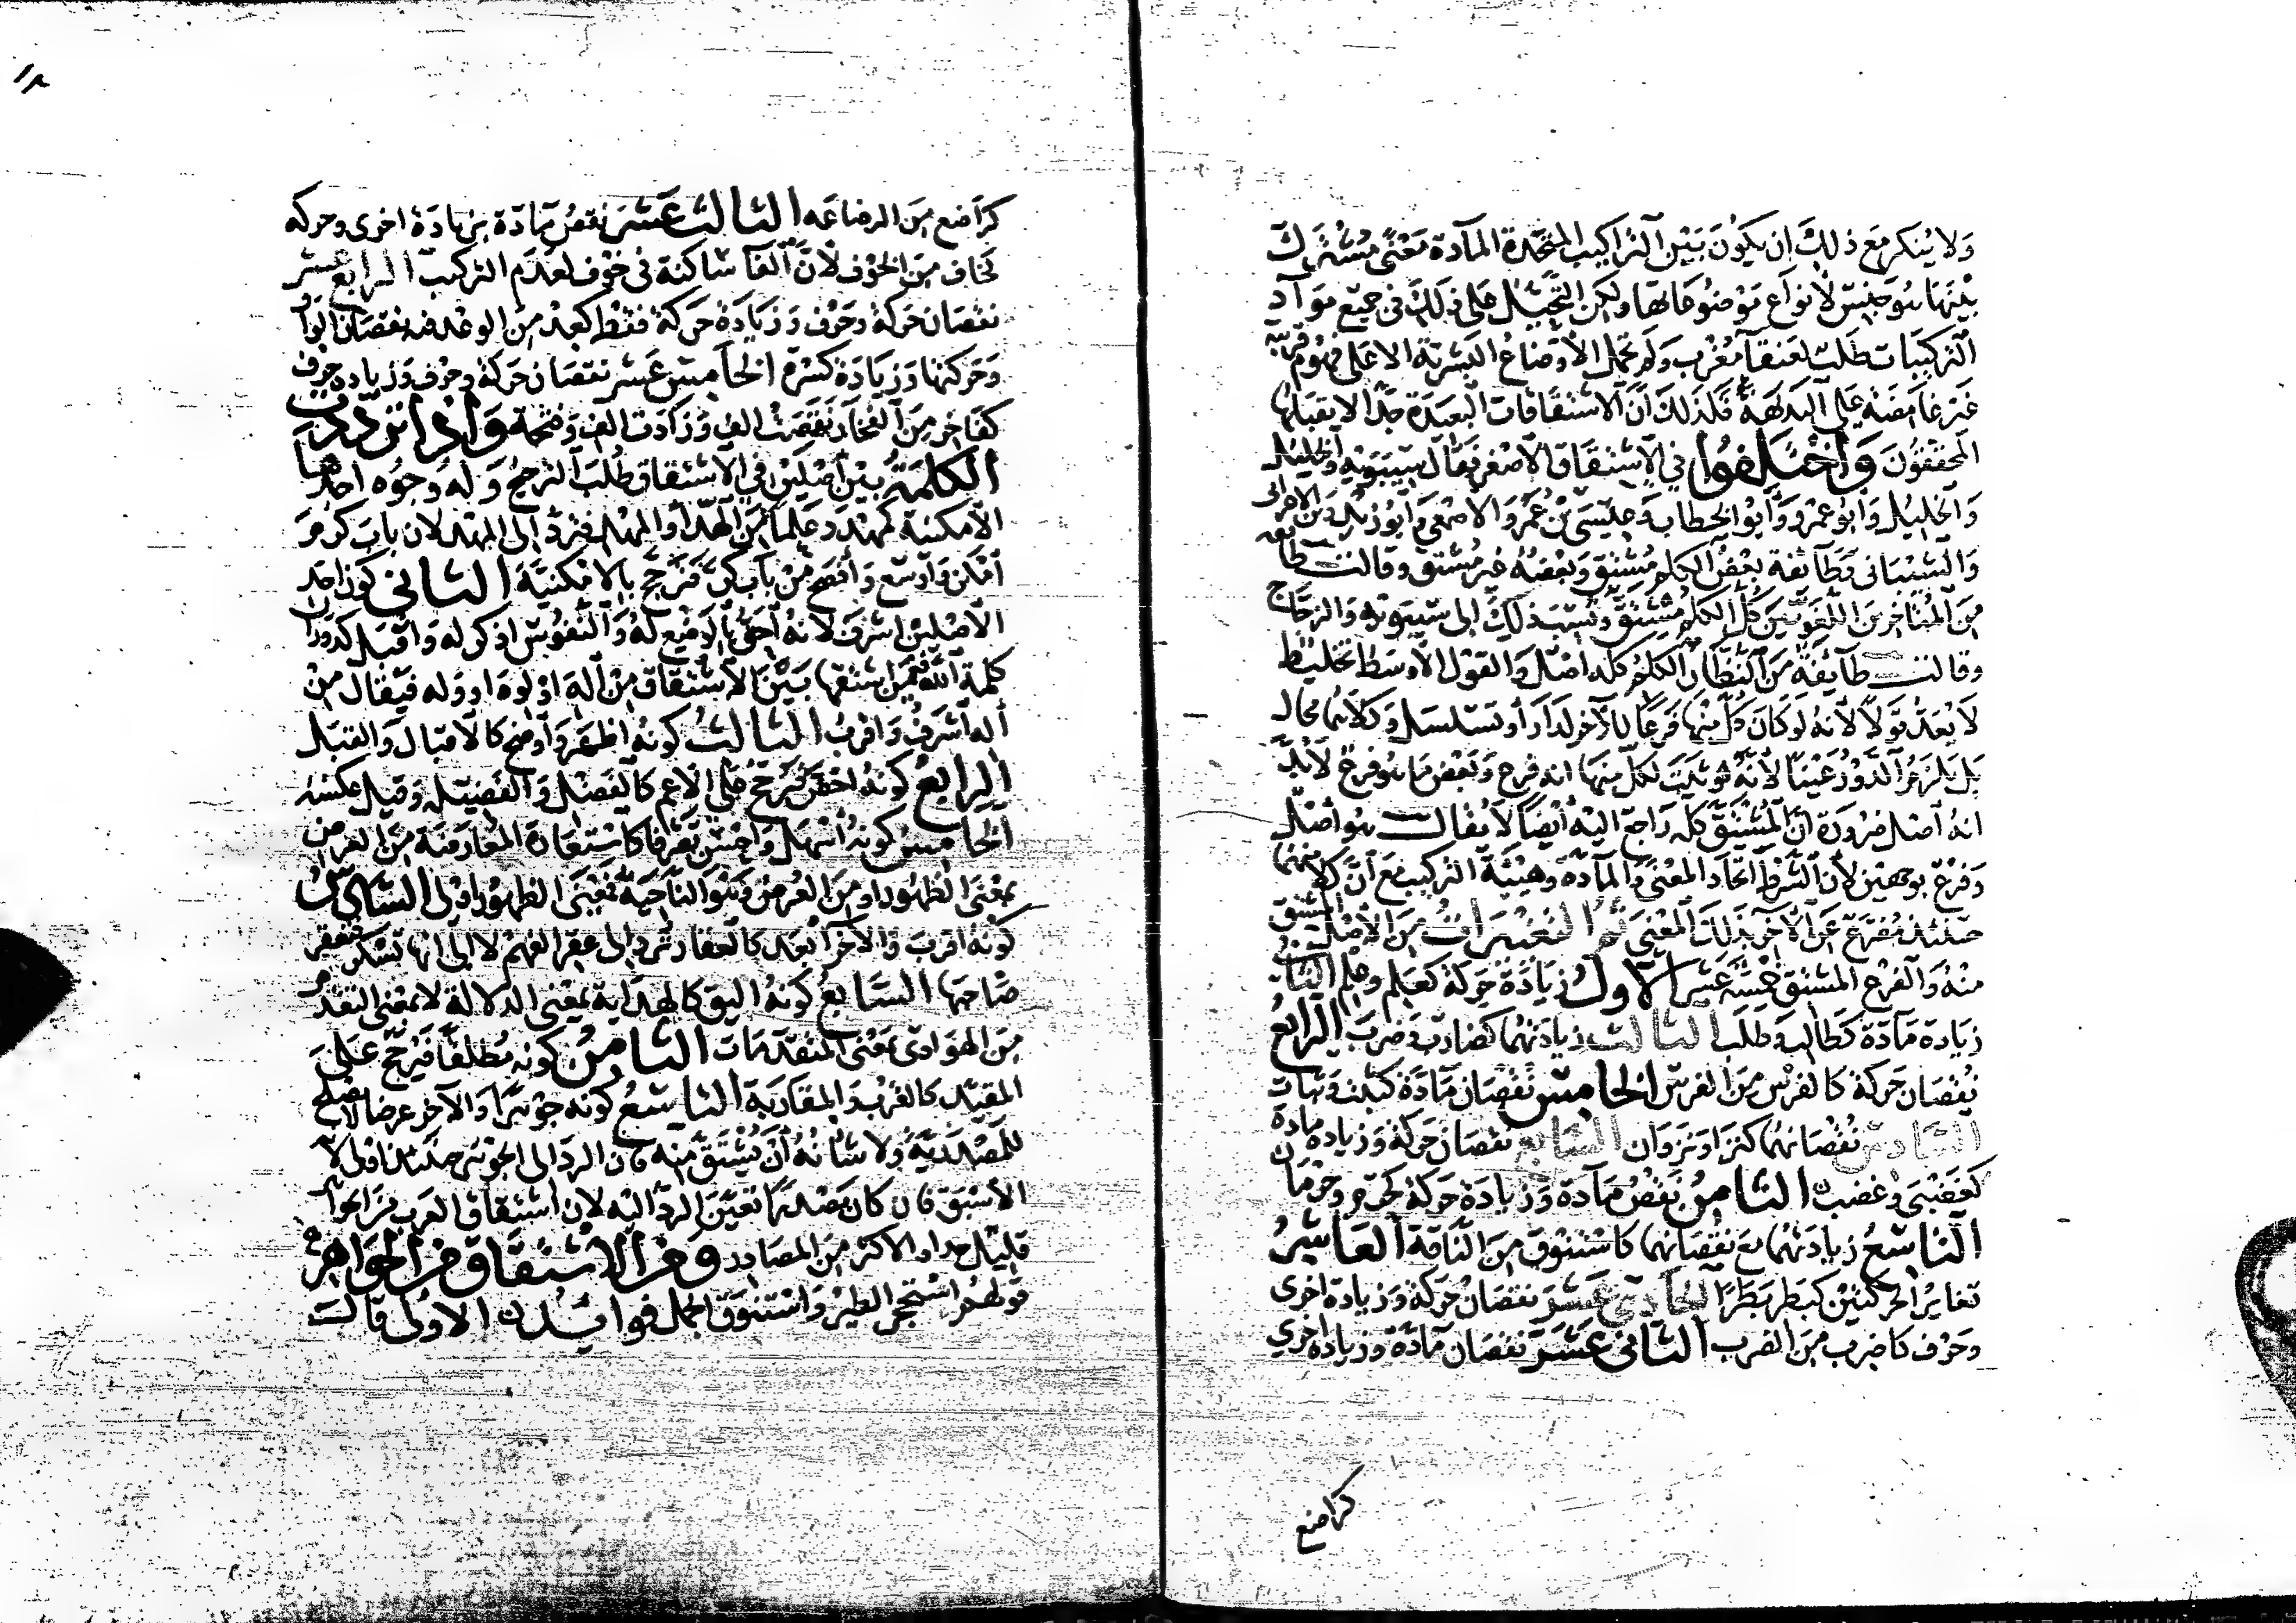 ولا ينكر مع ذلك ان يكون بين التراكيب المتحدة المادة معنى مشترك
بينها هو جنس لأنواع موضوعاتها ولكن التحيل على ذلك في جميع مواد
التركيبات طلب لعنقا مغرب ولم تحمل الأوضاع البشرية الا على فهوم قريبة
غير غامضة على البديهة فلذلك ان الاشتقاقات البعيدة جدا لا يقبلها
المحققون واختلفوا في الاشتقاق الاصغر فقال سيبويه والخليل
والخليل وابو عمرو وابو الخطاب وعيسى بن عمر والاصمعي وابو زيد وابن الاعرابي
والشيباني وطائفة بعض الكلم مشتق وبعضه غير مشتق وقالت طائفة
من المتاخرين اللغويين كل الكلم مشتق ونسب ذلك الى سيبويه والزجاج
وقالت طائفة من النظار الكلم كله اصل والقول الأوسط تخليط
لا يعد قولا لأنه لو كان كل منها فرعا للآخر لدار أو تسلسل وكلاهما محال
بل يلزم الدور عينا لأنه يثبت لكل منها انه فرع وبعض ما هو فرع لابد
انه اصل ضرورة ان المشتق كله راجع اليه أيضا لا يقال هو أصل
وفرع بوجهين لأن الشرط اتحاد المعنى والمادة وهيئة التركيب مع أن كلا منهما
حينئذ مفرع عن الآخر بذلك المعنى ثم التغييرات من الأصل المشتق
منه والفرع المشتق خمسة عشر الأول زيادة حركة كعلم وعلم الثاني
زيادة مادة كطالب وطلب الثالث زيادتهما كضارب وضرب الرابع
نقصان حركة كالفرس من الفرس الخامس نقصان مادة كثبت وثبات
السادس نقصانهما كنزا ونزوان السابع نقصان حركة وزيادة مادة
كغضبى وغضب الثامن نقص مادة وزيادة حركة كحرم وحرمان
التاسع زيادتهما مع نقصانهما كاستنوق من الناقة العاشر
تغاير الحركتين كبطر بطرا الحادي عشر نقصان حركة وزيادة اخرى
وحرف كاضرب من الضرب الثاني عشر نقصان مادة وزيادة اخرى
كراضع
كراضع من الرضاعه الثالث عشر نقص مادة بزيادة اخرى وحركه
كخاف من الخوف لأن الفا ساكنة في خوف لعدم التركيب الرابع عشر
نقصان حركة وحرف وزيادة حركة فقط كعد من الوعد فيه نقصان الواو
وحركتها وزيادة كسرة الخامس عشر نقصان حركة وحرف وزيادة حرف
كفاخر من الفخار نقصت الف وزادت الف وفتحة واذا ترددت
الكلمة بين أصلين في الاشتقاق طلب الترجيح وله وجوه احدها
الأمكنية كمهدد علما من الهد او المهد فيرد الى المهد لان باب كرم
امكن واوسع وافصح من باب كر فيرجح بالامكنية الثاني كون احد
الأصلين اشرف لأنه أحق بالوضع له والنفوس اذكر له واقبل كدوران
كلمة الله فيمن اشتقها بين الاشتقاق من أله او لوه او وله فيقال من
أله أشرف واقرب الثالث كونه اظهر وأوضح كالاقبال والقبل
الرابع كونه اخص فيرجح على الاعم كالفضل والفضيلة وقيل عكسه
الخامس كونه أسهل واحسن تصرفا كاشتقاق المعارضة من العرض
بمعنى الظهور او من العرض وهو الناحية فمعنى الظهور اولى السادس
كونه اقرب والآخر أبعد كالعقار ترد الى عقر الفهم لا الى انها تسكر فتعقر
صاحبها السابع كونه اليق كالهداية بمعنى الدلالة لا بمعنى التقدم
من الهوادي بمعنى المتقدمات الثامن كونه مطلقا فيرجح على
المقيد كالقرب والمقاربة التاسع كونه جوهرا والآخر عرضا لا يصلح
للمصدرية ولا شأنه أن يشتق منه فان الرد الى الجوهر حينئذ اولى لأنه
الأسبق فان كان مصدرا تعين الرد اليه لان اشتقاق العرب من الجواهر
قليل جدا والاكثر من المصادر ومن الاشتقاق من الجواهر
قولهم استحجر الطين واستنوق الجمل فوائد الاولى قالت